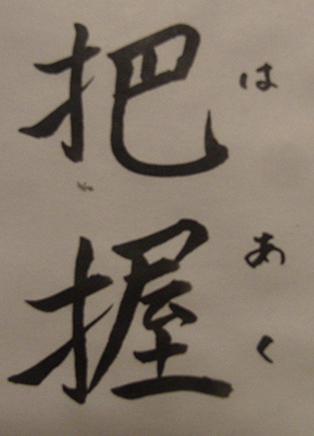 把握
はあく